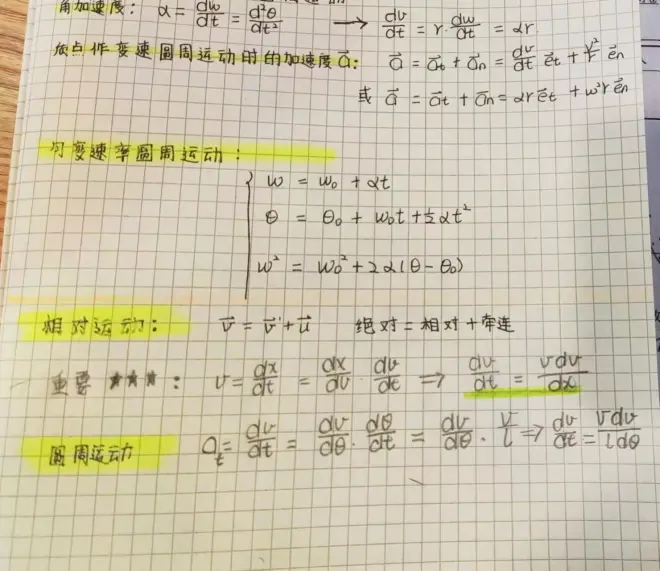 角加速度: α = dw/dt = d²θ/dt² → dv/dt = r·dw/dt = αr
质点作变速圆周运动时的加速度a⃗: a⃗ = a⃗t + a⃗n = dv/dt e⃗t + v²/r e⃗n
或 a⃗ = a⃗t + a⃗n = αr e⃗t + w²r e⃗n
匀变速率圆周运动:
w = w₀ + αt
θ = θ₀ + w₀t + ½αt²
w² = w₀² + 2α(θ - θ₀)
相对运动: v⃗ = v⃗' + u⃗ 绝对 = 相对 + 牵连
重要 ★★★: v = dx/dt = dx/dv · dv/dt ⇒ dv/dt = vdv/dx
圆周运动 at = dv/dt = dv/dθ · dθ/dt = dv/dθ · v/l ⇒ dv/dt = vdv/ldθ